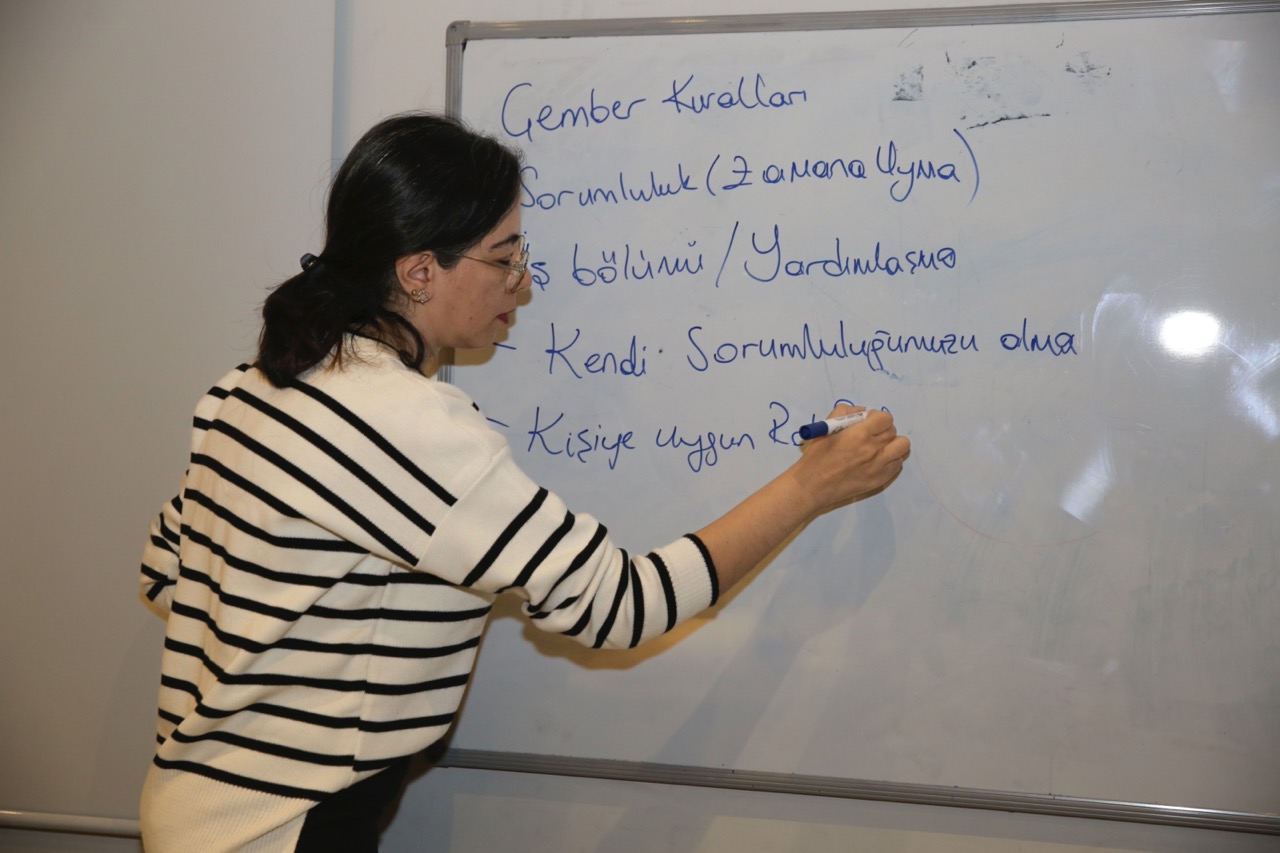 Çember Kuralları
Sorumluluk (Zamana Uyma)
İş bölümü / Yardımlaşma
- Kendi Sorumluluğumuzu alma
- Kişiye uygun